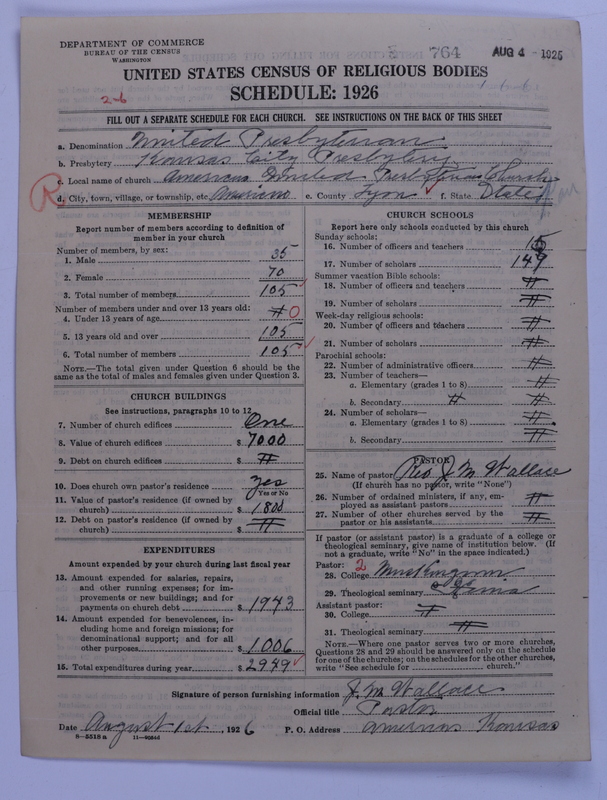 DEPARTMENT OF COMMERCE
BUREAU OF THE CENSUS
WASHINGTON
764
AUG 4 - 1926
UNITED STATES CENSUS OF RELIGIOUS BODIES
SCHEDULE: 1926
2-6
FILL OUT A SEPARATE SCHEDULE FOR EACH CHURCH. SEE INSTRUCTIONS ON THE BACK OF THIS SHEET
a. Denomination United Presbyterian
b. Presbytery Kansas City Presbytery
c. Local name of church Americus United Presbyterian Church
R
d. City, town, village, or township, etc. Americus e. County Lyon f. State
MEMBERSHIP
Report number of members according to definition of member in your church
Number of members, by sex:
1. Male 35
2. Female 70
3. Total number of members 105
Number of members under and over 13 years old:
4. Under 13 years of age # 0
5. 13 years old and over 105
6. Total number of members 105
NOTE.—The total given under Question 6 should be
same as the total of males and females given under Question 3.
CHURCH BUILDINGS
See instructions, paragraphs 10 to 12
7. Number of church edifices One
8. Value of church edifices $ 7000
9. Debt on church edifices $ #
10. Does church own pastor's residence yes
Yes or No
11. Value of pastor's residence (if owned by
church) $ 1800
12. Debt on pastor's residence (if owned by
church) $ #
EXPENDITURES
Amount expended by your church during last fiscal year
13. Amount expended for salaries, repairs,
and other running expenses; for im-
provements or new buildings; and for
payments on church debt $ 1943
14. Amount expended for benevolences, in-
cluding home and foreign missions; for
denominational support; and for all
other purposes $ 1006
15. Total expenditures during year $ 2949
CHURCH SCHOOLS
Report here only schools conducted by this church
Sunday schools:
16. Number of officers and teachers 15
17. Number of scholars 149
Summer vacation Bible schools:
18. Number of officers and teachers #
19. Number of scholars #
Week-day religious schools:
20. Number of officers and teachers #
21. Number of scholars #
Parochial schools:
22. Number of administrative officers #
23. Number of teachers—
a. Elementary (grades 1 to 8) #
b. Secondary # #
24. Number of scholars—
a. Elementary (grades 1 to 8) #
b. Secondary #
PASTOR
25. Name of pastor Rev J. M. Wallace
(If church has no pastor, write "None")
26. Number of ordained ministers, if any, em-
ployed as assistant pastors #
27. Number of other churches served by the
pastor or his assistants #
If pastor (or assistant pastor) is a graduate of a college or
theological seminary, give name of institution below. (If
not a graduate, write "No" in the space indicated.)
Pastor: 2
28. College Muskingum
29. Theological seminary Xenia
Assistant pastor:
30. College #
31. Theological seminary #
NOTE.—Where one pastor serves two or more churches,
Questions 28 and 29 should be answered only on the schedule
for one of the churches; on the schedules for the other churches,
write "See schedule for church."
Signature of person furnishing information J. M. Wallace
Official title Pastor
Date August 1st, 1926 P. O. Address Americus Kansas
8-5518 a